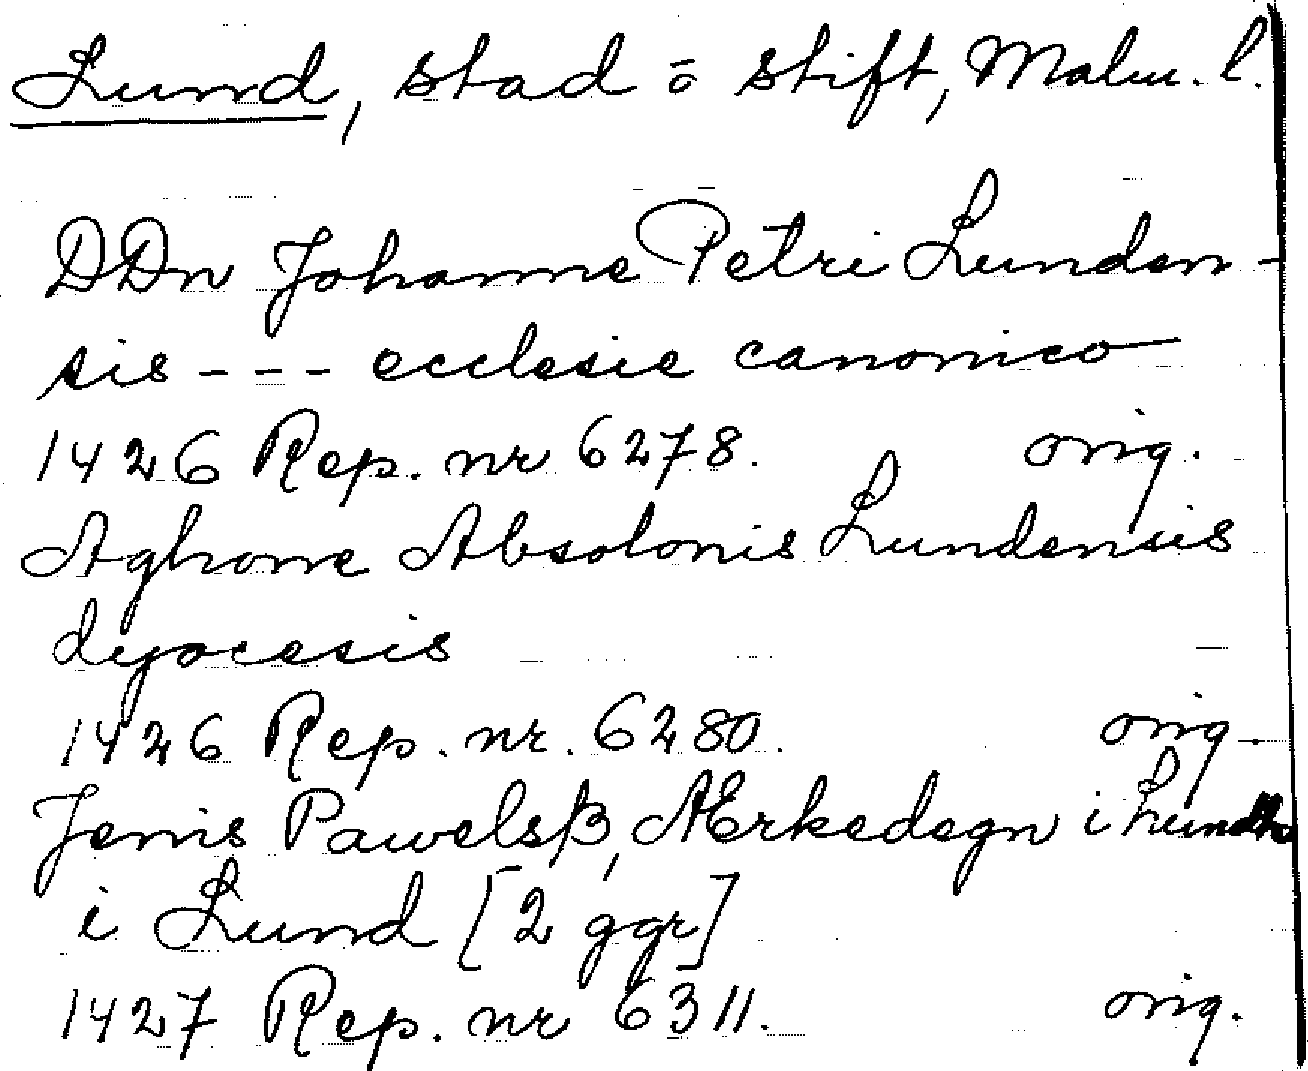 Lund, stad o stift, Malm. l.
DDn Johanne Petri Lunden-
sis --- ecclesie canonico
1426 Rep. nr 6278. orig.
Aghone Absolonis Lundensis
dyocesis
1426 Rep. nr. 6280. orig.
Jenis Pawelsß, Ærkedegn i Lundh
i Lund [2 ggr]
1427 Rep. nr 6311. orig.